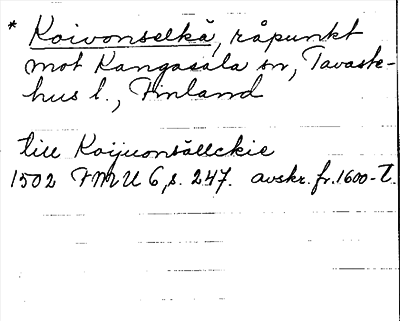 * Koivonselkä, råpunkt
mot Kangasala sn, Tavaste-
hus l., Finland
till Koijuonsällckie
1502 FMU 6, s. 247. avskr. fr. 1600-t.